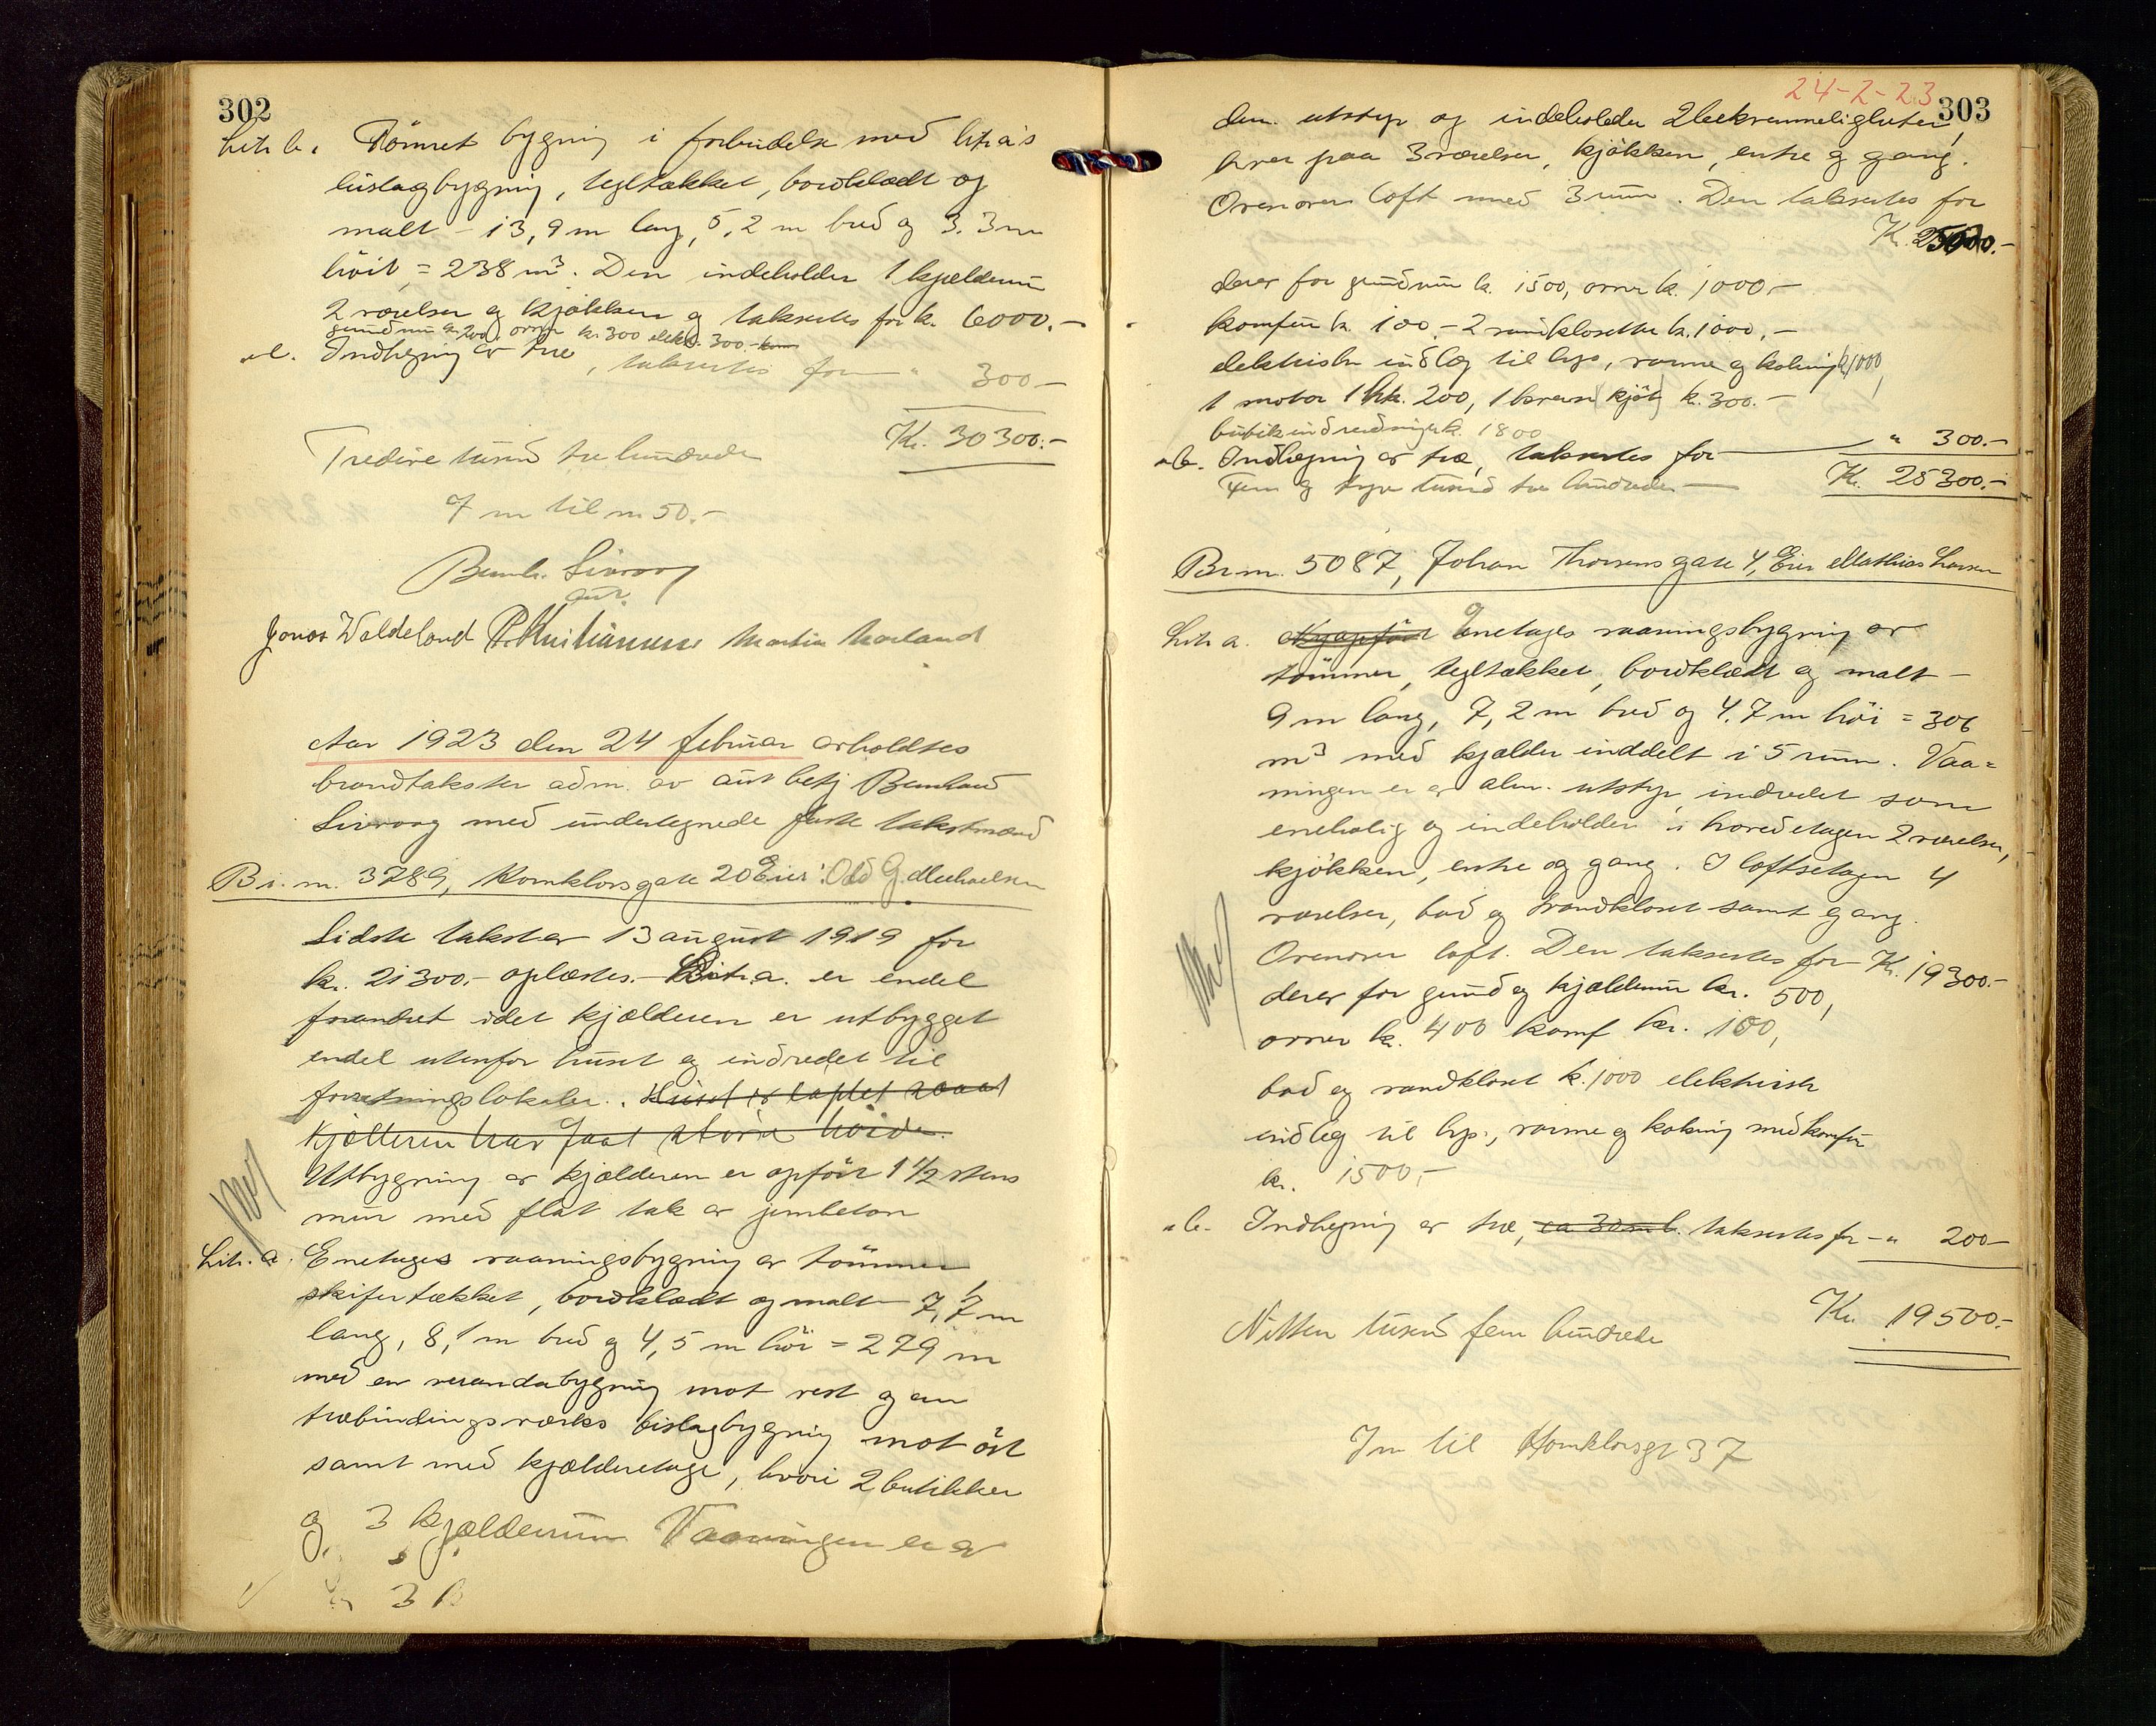 302
Litr b. Tømret bygning i forbindelse med litra a's
bislagbygning, tegltækket, bordklædt og
malt - 13,9 m lang, 5,2 m bred og 3.3 m
höit = 238 m³. Den indeholder 1 kjælderum
2 værelser og kjøkken og takseres for kr. 6000.-
grundmur kr. 200, ovner kr. 300 elektr. 300.-
" c. Indhegning av træ, takseres for " 300 -
Kr. 30300.-
Tredive tusind tre hundrede
7 m til m 50.-
Bernh. Sivorg
aut.
Jonas Waldeland P. Kristiansen Martin Morland
Aar 1923 den 24 februar avholdtes
brandtakster adm. av aut betj Bernhard
Sivorg med undertegnede faste takstmænd
Br. nr. 3789, Kornklovsgate 20 Eier: Odd G. Michaelsen
Sidste takst av 13 august 1919 for
kr. 21300.- oplæstes. - Litr. a. er endel
forandret idet kjælderen er utbygget
endel utenfor huset og indredet til
forretningslokaler. Huset er løftet saaat
kjælleren har faat større höide.
Utbygning av kjælderen er opfört 1 1/2 stens
mur med flat tak av jernbeton
Litr. a. Enetages vaaningsbygning av tömmer
skifertækket, bordklædt og malt 7,7 m
lang, 8,1 m bred og 4,5 m höi = 279 m
med en verandabygning mot vest og en
træbindingsværks bislagbygning mot öst
samt med kjælderetage, hvori 2 butikker
og 3 kjælderrum Vaaningen er av
24-2-23
303
alm. utstyr og indeholder 2 beboelsesleiligheter,
hver paa 3 værelser, kjökken, entre og gang.
Ovenover loft med 3 rum. Den takseres for
Kr. 25000.-
derav for grundmur k. 1500, ovner k. 1000,-
komfur k. 100.- 2 vandklosetter k. 1000,-
elektriske indlæg til lys, varme og kokning k 1000,
1 motor 1 hk. 200, 1 kvern (kjöt) k. 300.-
butikindredninger k. 1800
" b. Indhegning av træ, takseres for " 300.-
Fem og tyve tusind tre hundrede Kr. 25300.-
Br. nr. 5087, Johan Thorsens gate 4, Eier Mathias Larsen
Litr a. Nyopfört Enetages vaaningsbygning av
tömmer, tegltækket, bordklædt og malt -
9 m lang, 7,2 m bred og 4.7 m höi = 306
m³ med kjælder inddelt i 5 rum. Vaa=
ningen er av alm. utstyr, indredet som
enebolig og indeholder i hovedetagen 2 værelser,
kjökken, entre og gang. I loftsetagen 4
værelser, bad og vandkloset samt gang.
Ovenover loft. Den takseres for Kr. 19300.-
derav for grund og kjældermur kr. 500,
ovner kr. 400 komf kr. 100,
bad og vandkloset k. 1000 elektrisk
indlæg til lys, varme og kokning med komfur
kr. 1500,-
" b. Indhegning av træ, ca 30 m l. takseres for - " 200 -
Kr. 19500.-
Nitten tusind fem hundrede
7 m til Kornklovsgt 37